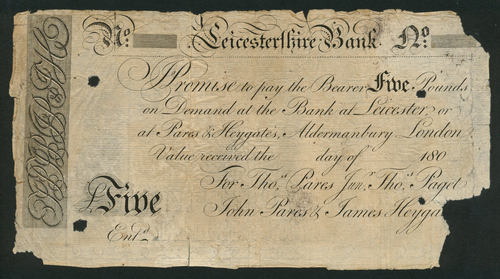 No. Leicestershire Bank. No.
I Promise to pay the Bearer Five Pounds
on Demand at the Bank at Leicester, or
at Pares & Heygates, Aldermanbury London
Value received the day of 180
For Thos. Pares Junr. Thos. Paget
£Five John Pares & James Heyga
Entd.